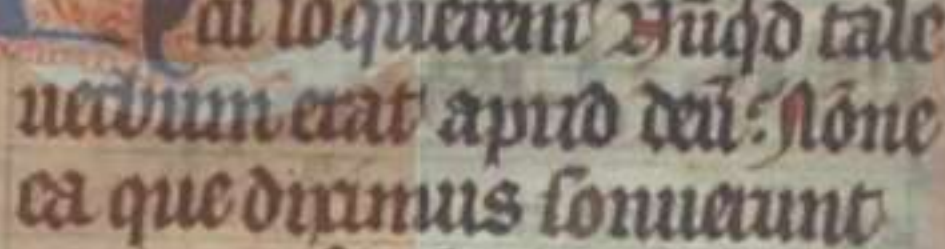 loquerent Nūqd tale
uerbum erat apud deū: Nōne
ea que diximus sonuerunt